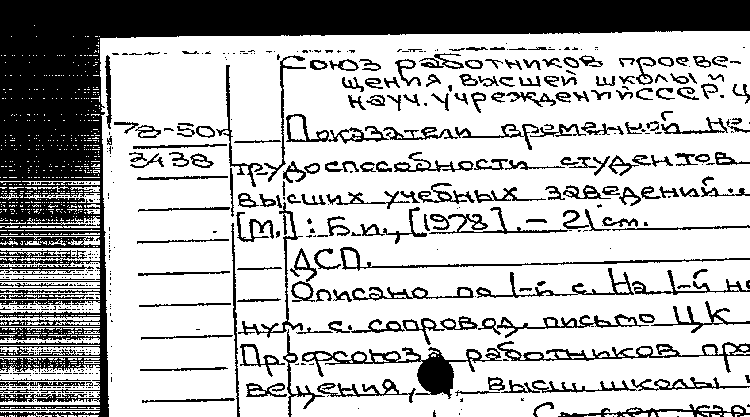 Союз работников просве-
щения, высшей школы и
науч. учреждений СССР. Ц
78-50к Показатели временной не-
3438 трудоспособности студентов
высших учебных заведений..
[М.] : Б.и., [1978]. – 21 см.
ДСП.
Описано по 1-й с. На 1-й не
нум. с. сопровод. письмо ЦК
Профсоюза работников про
вещения, высш. школы